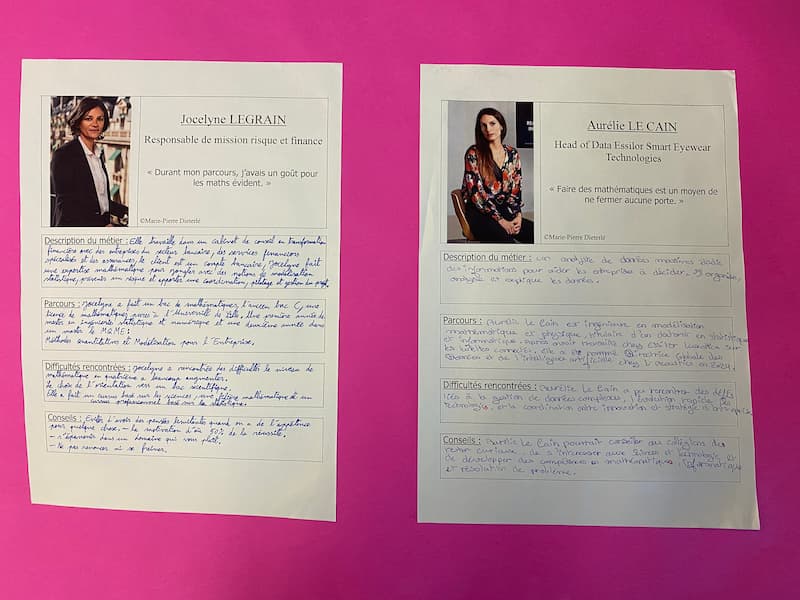 Jocelyne LEGRAIN
Responsable de mission risque et finance
« Durant mon parcours, j'avais un goût pour
les maths évident. »
©Marie-Pierre Dieterlé
Description du métier : Elle travaille dans un cabinet de conseil en transformation
financière avec des entreprises du secteur bancaire, des services financiers
spécialisés et les assurances, le client est un compte bancaire, Jocelyne fait
une expertise mathématique pour jongler avec des notions de modélisation
statistique, prévenir un risque et apporter une coordination, pilotage et gestion de projet.
Parcours : Jocelyne a fait un bac de mathématiques, l'ancien bac C, une
licence de mathématiques pures à l'Université de Lille. Une première année de
master en Ingénierie statistique et numérique et une deuxième année dans
un master le MQME:
Méthodes quantitatives et Modélisation pour l'Entreprise.
Difficultés rencontrées : Jocelyne a rencontrée des difficultés le niveau de
mathématique en quatrième a beaucoup augmenter.
Le choix de l'orientation vers un bac scientifique.
Elle a fait un cursus basé sur les sciences, une filière mathématique et un
cursus professionnel basé sur la statistique.
Conseils : Eviter d'avoir des pensées limitantes quand on a de l'appétence
pour quelque chose. - la motivation d'où 50% de la réussite,
- s'épanouir dans un domaine qui vous plait.
- Ne pas renoncer ni se freiner.
Aurélie LE CAIN
Head of Data Essilor Smart Eyewear
Technologies
« Faire des mathématiques est un moyen de
ne fermer aucune porte. »
©Marie-Pierre Dieterlé
Description du métier : un analyste de données massives étudie
des informations pour aider les entreprise à décider. Il organise,
analyse et explique les données.
Parcours : Aurélie Le Cain est ingénieure en modélisation
mathématique et physique, titulaire d'un doctorat en statistique
et informatique. Après avoir travaillé chez Essilor Luxottica sur
les lunettes connectés, elle a été nommé Directrice Globale des
Données et de l'intelligence artificielle chez l'Acoustics en 2024.
Difficultés rencontrées : Aurélie Le Cain a pu rencontrer des défis
liés à la gestion de données complexes, l'évolution rapide des
technologies, et la coordination entre innovation et stratégie d'entreprise
Conseils : Aurélie Le Cain pourrait conseiller au collégiens de
rester curieux, de s'intéresser aux Sciences et Technologie et
de développer des compétences en mathématiques, informatique
et résolution de problème.